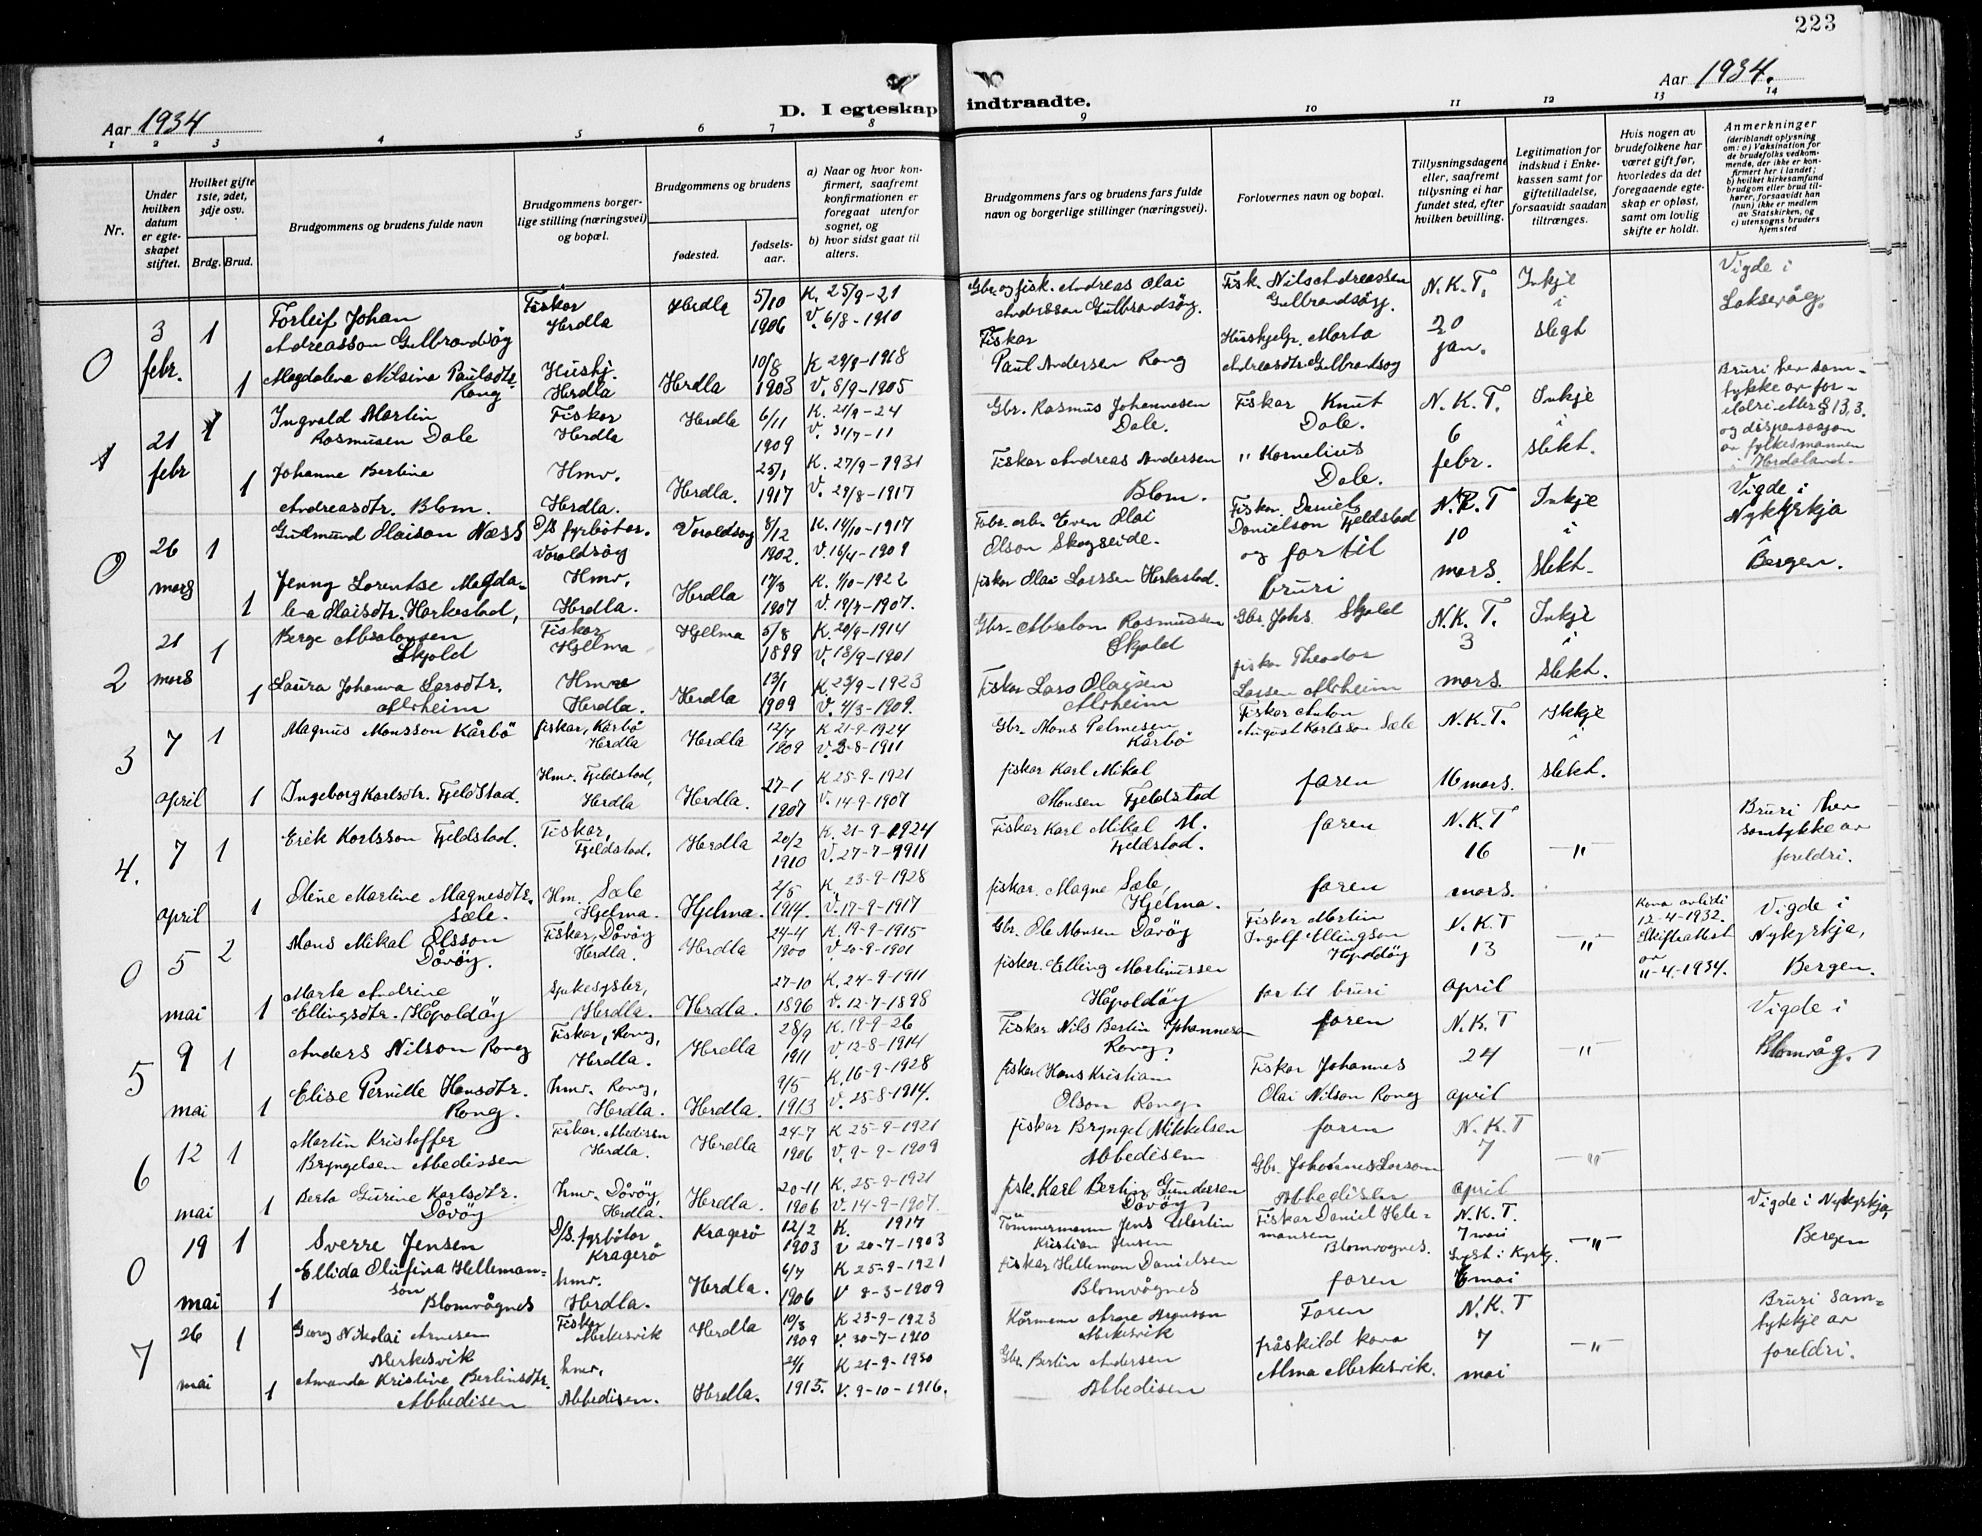 223
Aar 1934
D. I egteskap indtraadte.
Aar 1934.
1 2 3 4 5 6 7 8 9 10 11 12 13 14
Nr.
Under hvilken datum er egteskapet stiftet.
Hvilket gifte 1ste, 2det, 3dje osv.
Brdg. Brud.
Brudgommens og brudens fulde navn
Brudgommens borgerlige stilling (næringsvei) og bopæl.
Brudgommens og brudens
fødested.
fødselsaar.
a) Naar og hvor konfirmert, saafremt konfirmationen er foregaat utenfor sognet, og
b) hvor sidst gaat til alters.
Brudgommens fars og brudens fars fulde navn og borgerlige stillinger (næringsvei).
Forlovernes navn og bopæl.
Tillysningsdagene eller, saafremt tillysning ei har fundet sted, efter hvilken bevilling.
Legitimation for indskud i Enkekassen samt for giftetilladelse, forsaavidt saadan tiltrænges.
Hvis nogen av brudefolkene har været gift før, hvorledes da det foregaaende egteskap er opløst, samt om lovlig skifte er holdt.
Anmerkninger
(deriblandt oplysning om: a) Vaksination for de brudefolks vedkommende, der ikke er konfirmert her i landet; b) hvilket kirkesamfund brudgom eller brud tilhører, forsaavidt han (hun) ikke er medlem av Statskirken, og c) utensogns bruders hjemsted
0 3 febr. 1 Torleif Johan Andreasson Gulbrandsøy Fiskar Herdla Herdla 5/10 1906 K. 25/9-21 V. 6/8-1910 Gbr. og fisk. Andreas Olai Anderssen Gulbrandsøy. Fisk. Nils Andreassen Gulbrandsøy. N.K.T. 20 jan. Inkje i slegt Vigde i Laksevåg.
1 Magdalena Nilsina Paulsdtr. Rong Hushj. Herdla Herdla 10/8 1903 K 29/9-1918 V. 8/9-1905 Fiskar Paul Andersen Rong Hushjelp. Marta Andreasdtr. Gulbrandsøy
1 21 febr 1 Ingvald Martin Rasmusen Dale Fiskar Herdla Herdla 6/11 1909 K. 21/9-24 V. 31/7-11 Gbr. Rasmus Johannesen Dale. Fiskar Knut Dale. N.K.T. 6 febr. Inkje i slekt. Bruri hev samtykke av foreldri etter § 13,3. og dispensasjon av fylkesmannen i Hordaland.
1 Johanne Bertine Andreasdtr. Blom. Hmv. Herdla. Herdla. 25/1 1917 K. 27/9-1931 V. 29/8-1917 Fiskar Andreas Andersen Blom. " Kornelius Dale.
0 26 mars 1 Gudmund Olaison Næss D/S fyrbøtar. Voraldsøy Voraldsøy 8/12 1902. K. 14/10-1917 V. 18/4-1909 Fabr. arb. Even Olai Olson Skogseide. Fiskar. Daniel Danielson Fjeldstad og far til bruri N.K.T 10 mars. Inkje i slekt. Vigde i Nykyrkja i Bergen.
1 Jenny Lorentse Magdalena Olaisdtr. Harkestad, Hmv. Herdla. Herdla 17/3 1907 K. 1/10-1922 V. 19/7-1907. fiskar Olai Larssen Harkestad.
2 21 mars 1 Berge Absalonsen Skjold Fiskar Hjelma Hjelma 5/8 1899 K. 20/9-1914 V. 18/9-1901 Gbr. Absalon Rasmussen Skjold Gbr. Johs. Skjold N.K.T. 3 mars. Inkje i slekt.
1 Laura Johanna Larsdtr. Alvheim Hmv Herdla. Herdla 13/1 1909 K. 23/9-1923 V. 4/3-1909. Fiskar Lars Olaisen Alvheim fiskar Theodor Larsen Alvheim
3 7 april 1 Magnus Monsson Kårbø fiskar, Kårbø Herdla Herdla 12/7 1909 K 21-9-1924 V. 3-8-1911 Gbr. Mons Palmesen Kårbø Fiskar Anton August Karlsson Sæle N.K.T. 16 mars. Ikkje i slekt.
1 Ingeborg Karlsdtr. Fjeldstad. Hmv. Fjeldstad, Herdla Herdla. 27-1 1907 K 25-9-1921 V. 14-9-1907 fiskar Karl Mikal Monsen Fjeldstad faren
4. 7 april 1 Erik Karlsson Fjeldstad. Fiskar, Fjeldstad. Herdla 20/2 1910 K. 21-9-1924 V. 27-7-1911 Fiskar Karl Mikal M. Fjeldstad. faren N.K.T 16 mars. -"- Bruri hev samtykke av foreldri.
1 Oline Martine Magnesdtr. Sæle. Hm. Sæle Hjelma. Hjelma. 2/5 1914. K. 23-9-1928 V. 17-9-1917 fiskar. Magne Sæle, Hjelma. faren
0 5 mai 2 Mons Mikal Olsson Dåvøy. Fiskar, Dåvøy Herdla. Herdla 24-4 1900 K. 19-9-1915 V 20-9-1901 Gbr. Ole Monsen Dåvøy Fiskar Martin Ingolf Ellingson Håpoldøy N.K.T 13 april " Kona avlidi 12-4-1932. Skifteattest av 11-4-1934. Vigde i Nykyrkja, Bergen.
1 Marta Andrine Ellingsdtr. Håpoldøy sjukesyster, Herdla. Herdla. 27-10 1896 K. 24-9-1911 V. 12-7-1898 fiskar. Elling Martinussen Håpoldøy far til bruri
5 9 mai 1 Anders Nilson Rong Fiskar, Rong, Herdla. Herdla 28/9 1911 K. 19-9-26 V. 12-8-1914 Fiskar Nils Bertin Johannesen Rong. faren N.K.T 24 april " Vigde i Blomvåg.
1 Elise Pernille Hansdtr. Rong. hmv. Rong, Herdla. Herdla. 9/5 1913 K. 16-9-1928 V. 25-8-1914. fiskar Hans Kristian Olson Rong. Fiskar Johannes Olai Nilson Rong
6 12 mai 1 Martin Kristoffer Bryngelsen Abbedissen Fiskar. Abedisen Herdla. Herdla 24-7 1906 K 25-9-1921 V. 9-9-1909 fiskar Bryngel Mikkelsen Abbedisen faren N.K.T 7 april -"-
1 Berta Gurine Karlsdtr. Dåvøy hmv. Dåvøy, Herdla. Herdla. 20-11 1906 K. 25-9-1921 V. 14-9-1907. fisk. Karl Bertin Gundersen Dåvøy, Gbr. Johannes Larson Abbedisen
0 19 mai 1 Sverre Jensen D/S. fyrbøtar Kragerø Kragerø 12/2 1903 K. 1917 V 20-7-1903 Tømmermann Jens Martin Kristian Jensen Fiskar Daniel Helemansen Blomvågnes. N.K.T. 7 mai Lyst i Kyrkj. 6 mai -"- Vigde i Nykyrkja, Bergen
1 Ellida Olufina Hellemanson Blomvågnes hmv. Herdla. Herdla. 6/7 1906 K 25-9-1921 V 8-3-1909 fiskar Helleman Danielsen Blomvågnes faren
7 26 mai 1 Georg Nikolai Arnesen Merkesvik Fiskar Merkesvik Herdla 10/8 1909 K 23-9-1923 V. 30-7-1910 Kårmann Arne Merkesvik Faren N.K.T 7 mai -"- Bruri samtykkje av foreldri.
1 Amanda Kristine Bertinsdtr. Abbedisen hmv. Abbedisen. Herdla. 24/1 1915. K 21-9-1930 V. 9-10-1916. Gbr. Bertin Andersen Abbedisen fråskild kona Alma Merkesvik.